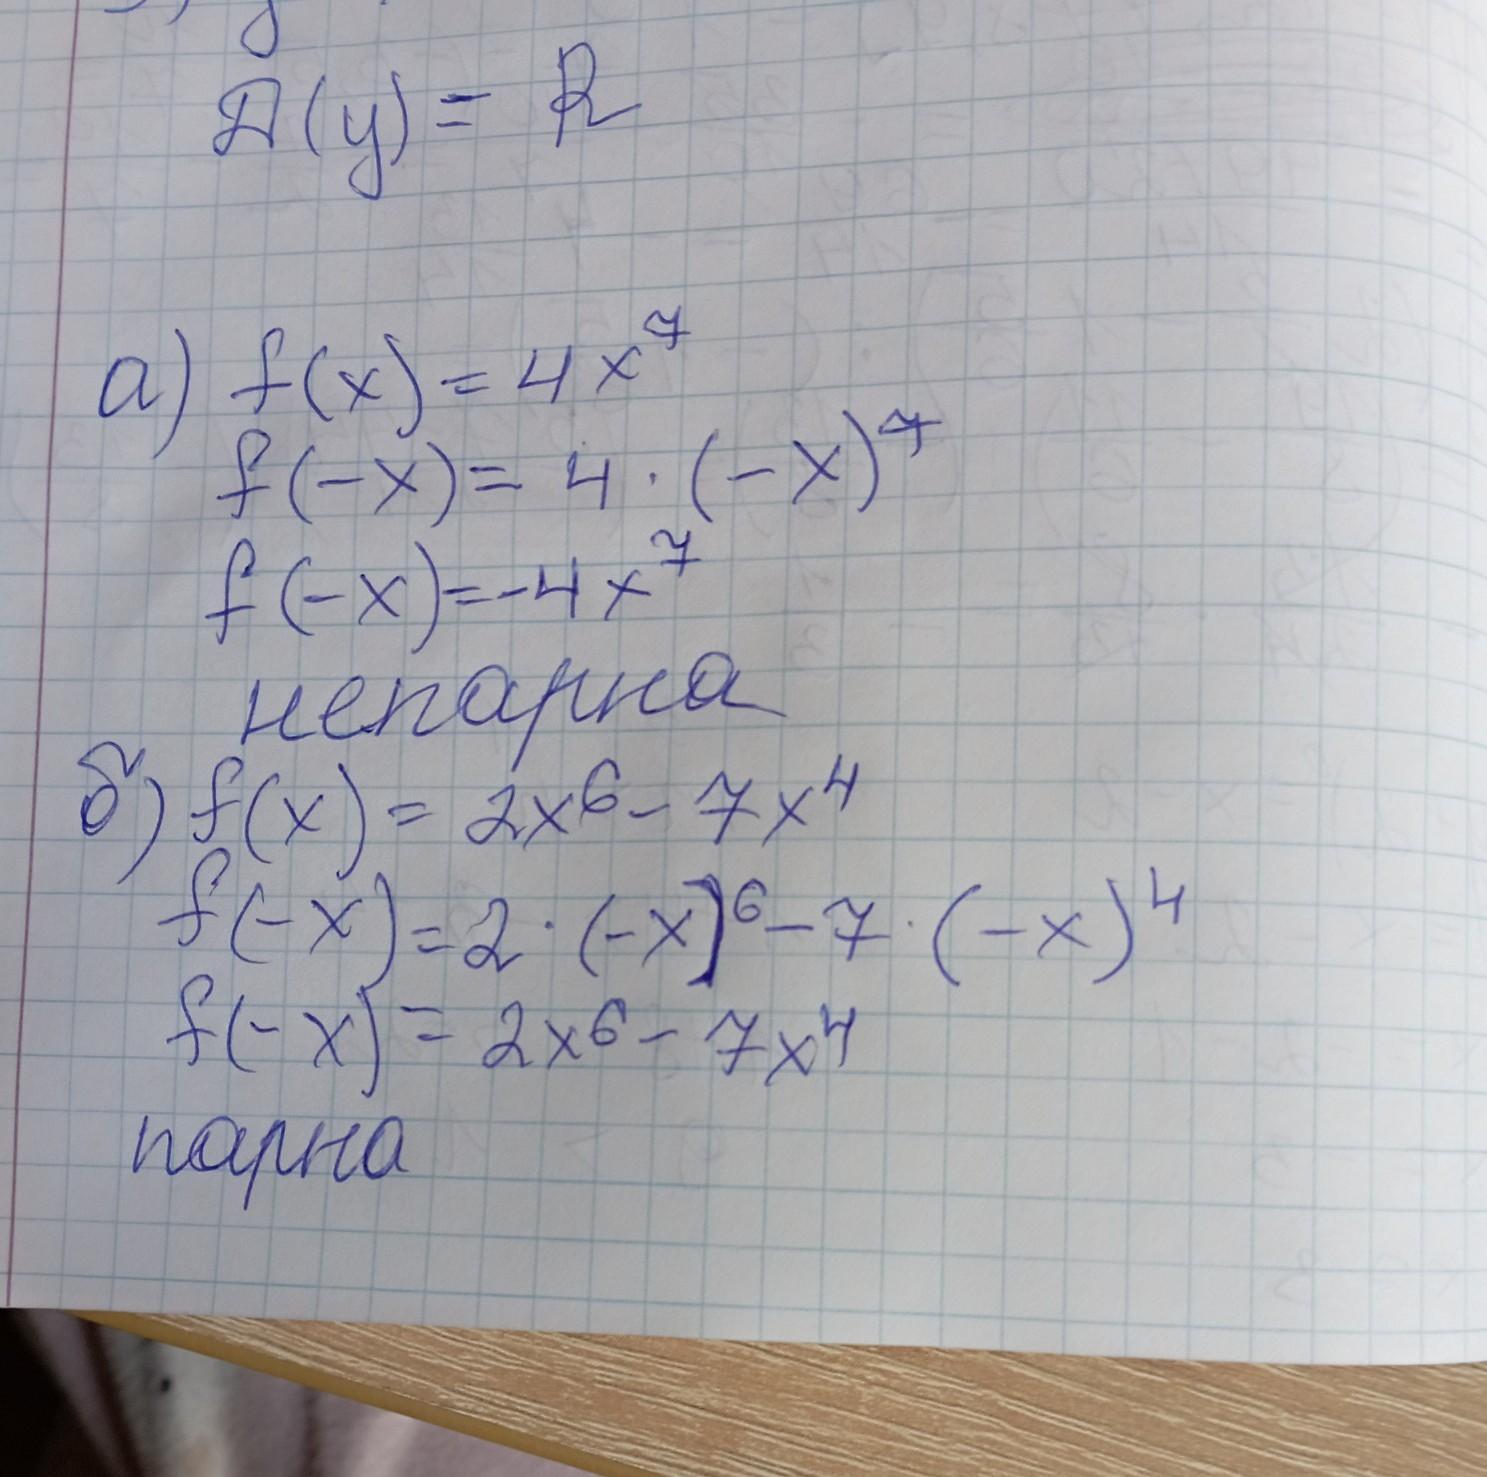 Д(y) = R
а) f(x) = 4x⁷
f(-x) = 4 · (-x)⁷
f(-x) = -4x⁷
непарна
б) f(x) = 2x⁶ - 7x⁴
f(-x) = 2 · (-x)⁶ - 7 · (-x)⁴
f(-x) = 2x⁶ - 7x⁴
парна